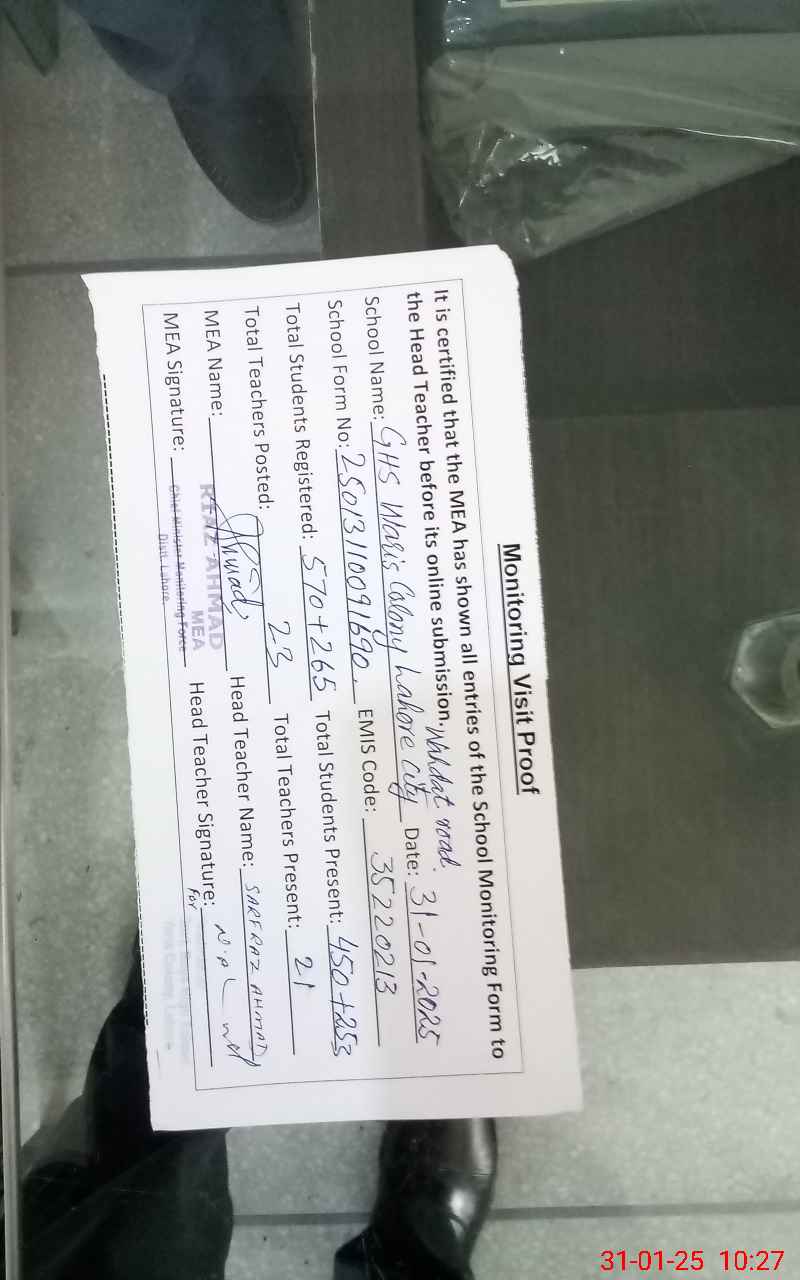 Monitoring Visit Proof
It is certified that the MEA has shown all entries of the School Monitoring Form to
the Head Teacher before its online submission. Wahdat road.
School Name: GHS Waris Colony Lahore City Date: 31-01-2025
School Form No: 25013110091690. EMIS Code: 35220213
Total Students Registered: 570+265 Total Students Present: 450+253
Total Teachers Posted: 23 Total Teachers Present: 21
MEA Name: Head Teacher Name: SARFRAZ AHMAD
RIAZ AHMAD
MEA
MEA Signature: Head Teacher Signature:
Chief Minister Monitoring Force
Distt. Lahore.
For
31-01-25 10:27